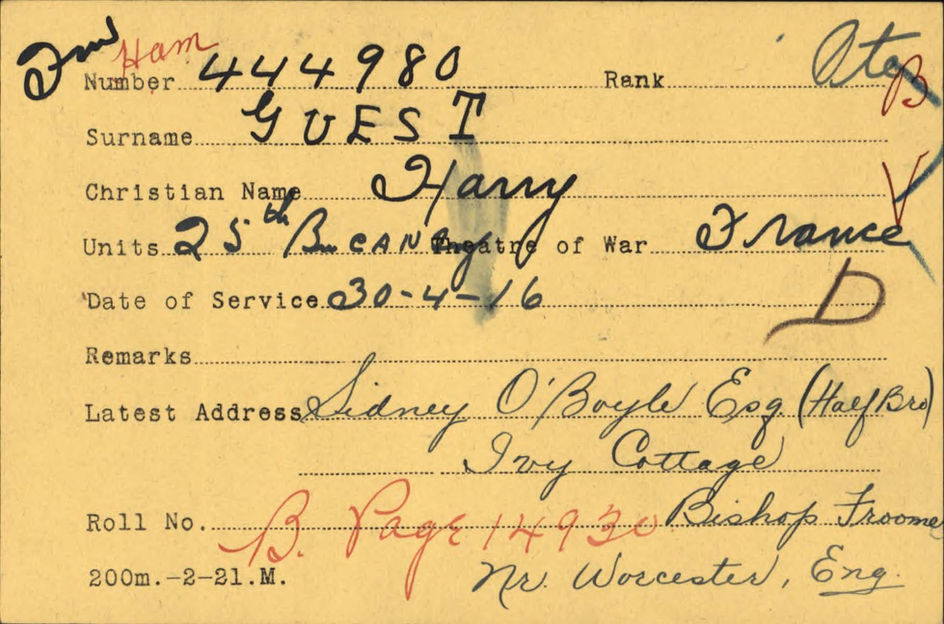 Ham
Number 444980 Rank Pte B
Surname GUEST
Christian Name Harry
Units 25th Bn CAN Theatre of War France
Date of Service 30-4-16
D
Remarks
Latest Address Sidney O'Boyle Esq (Half Bro)
Ivy Cottage
Roll No. B. Page 14930 Bishop Froome
200m.-2-21.M. Nr. Worcester, Eng.